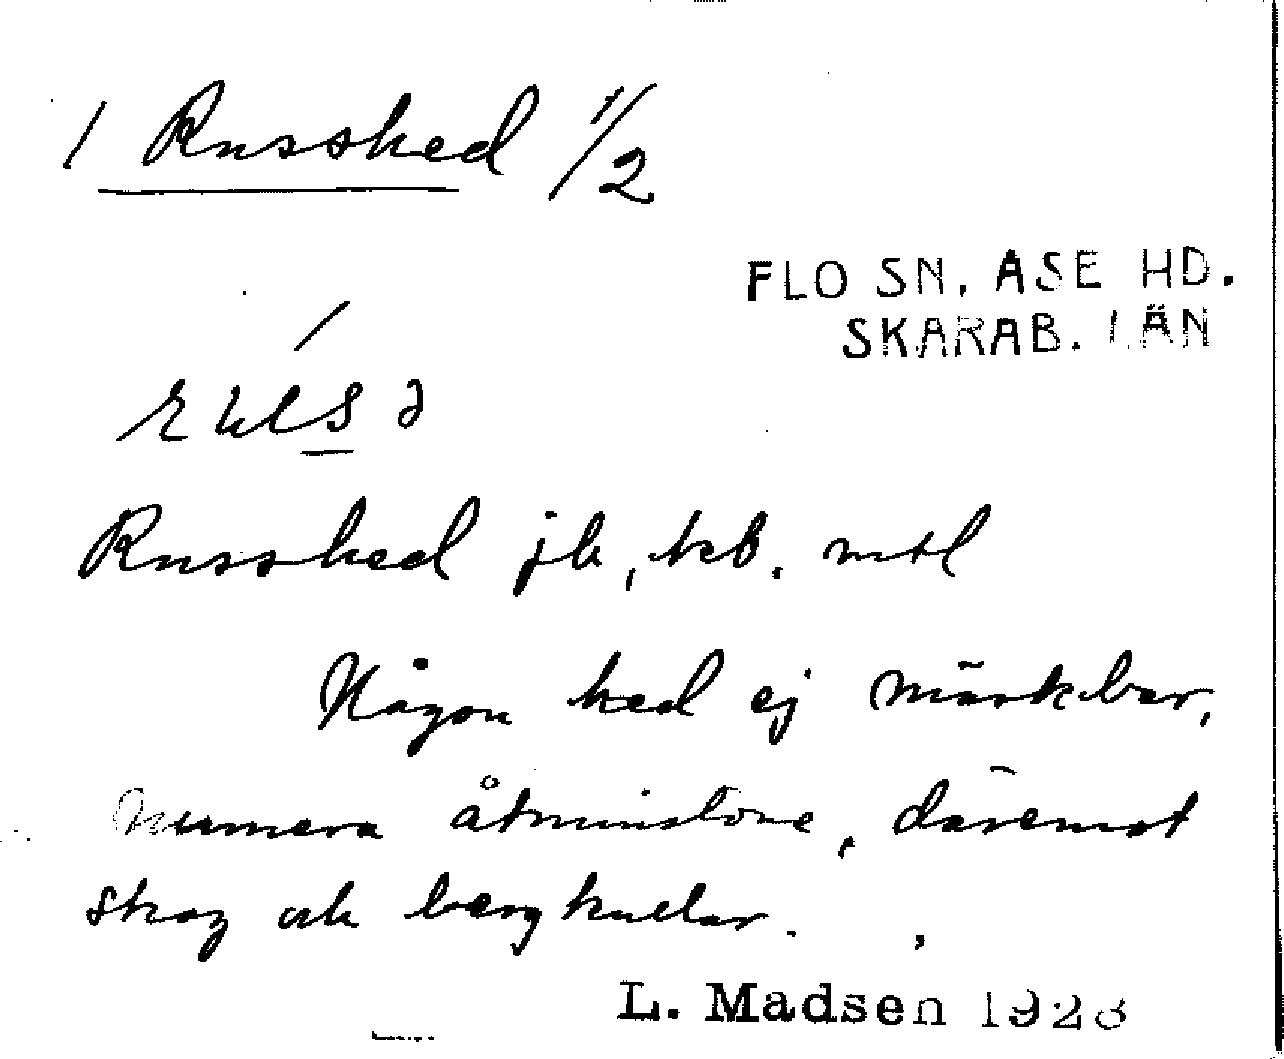 1 Russked 1/2
FLO SN. ASE HD.
SKARAB. LÄN
Russked jb, kb. mtl
Någon hed ej märkbar,
numera åtminstone, däremot
skog och bergkullar.
L. Madsen 1926